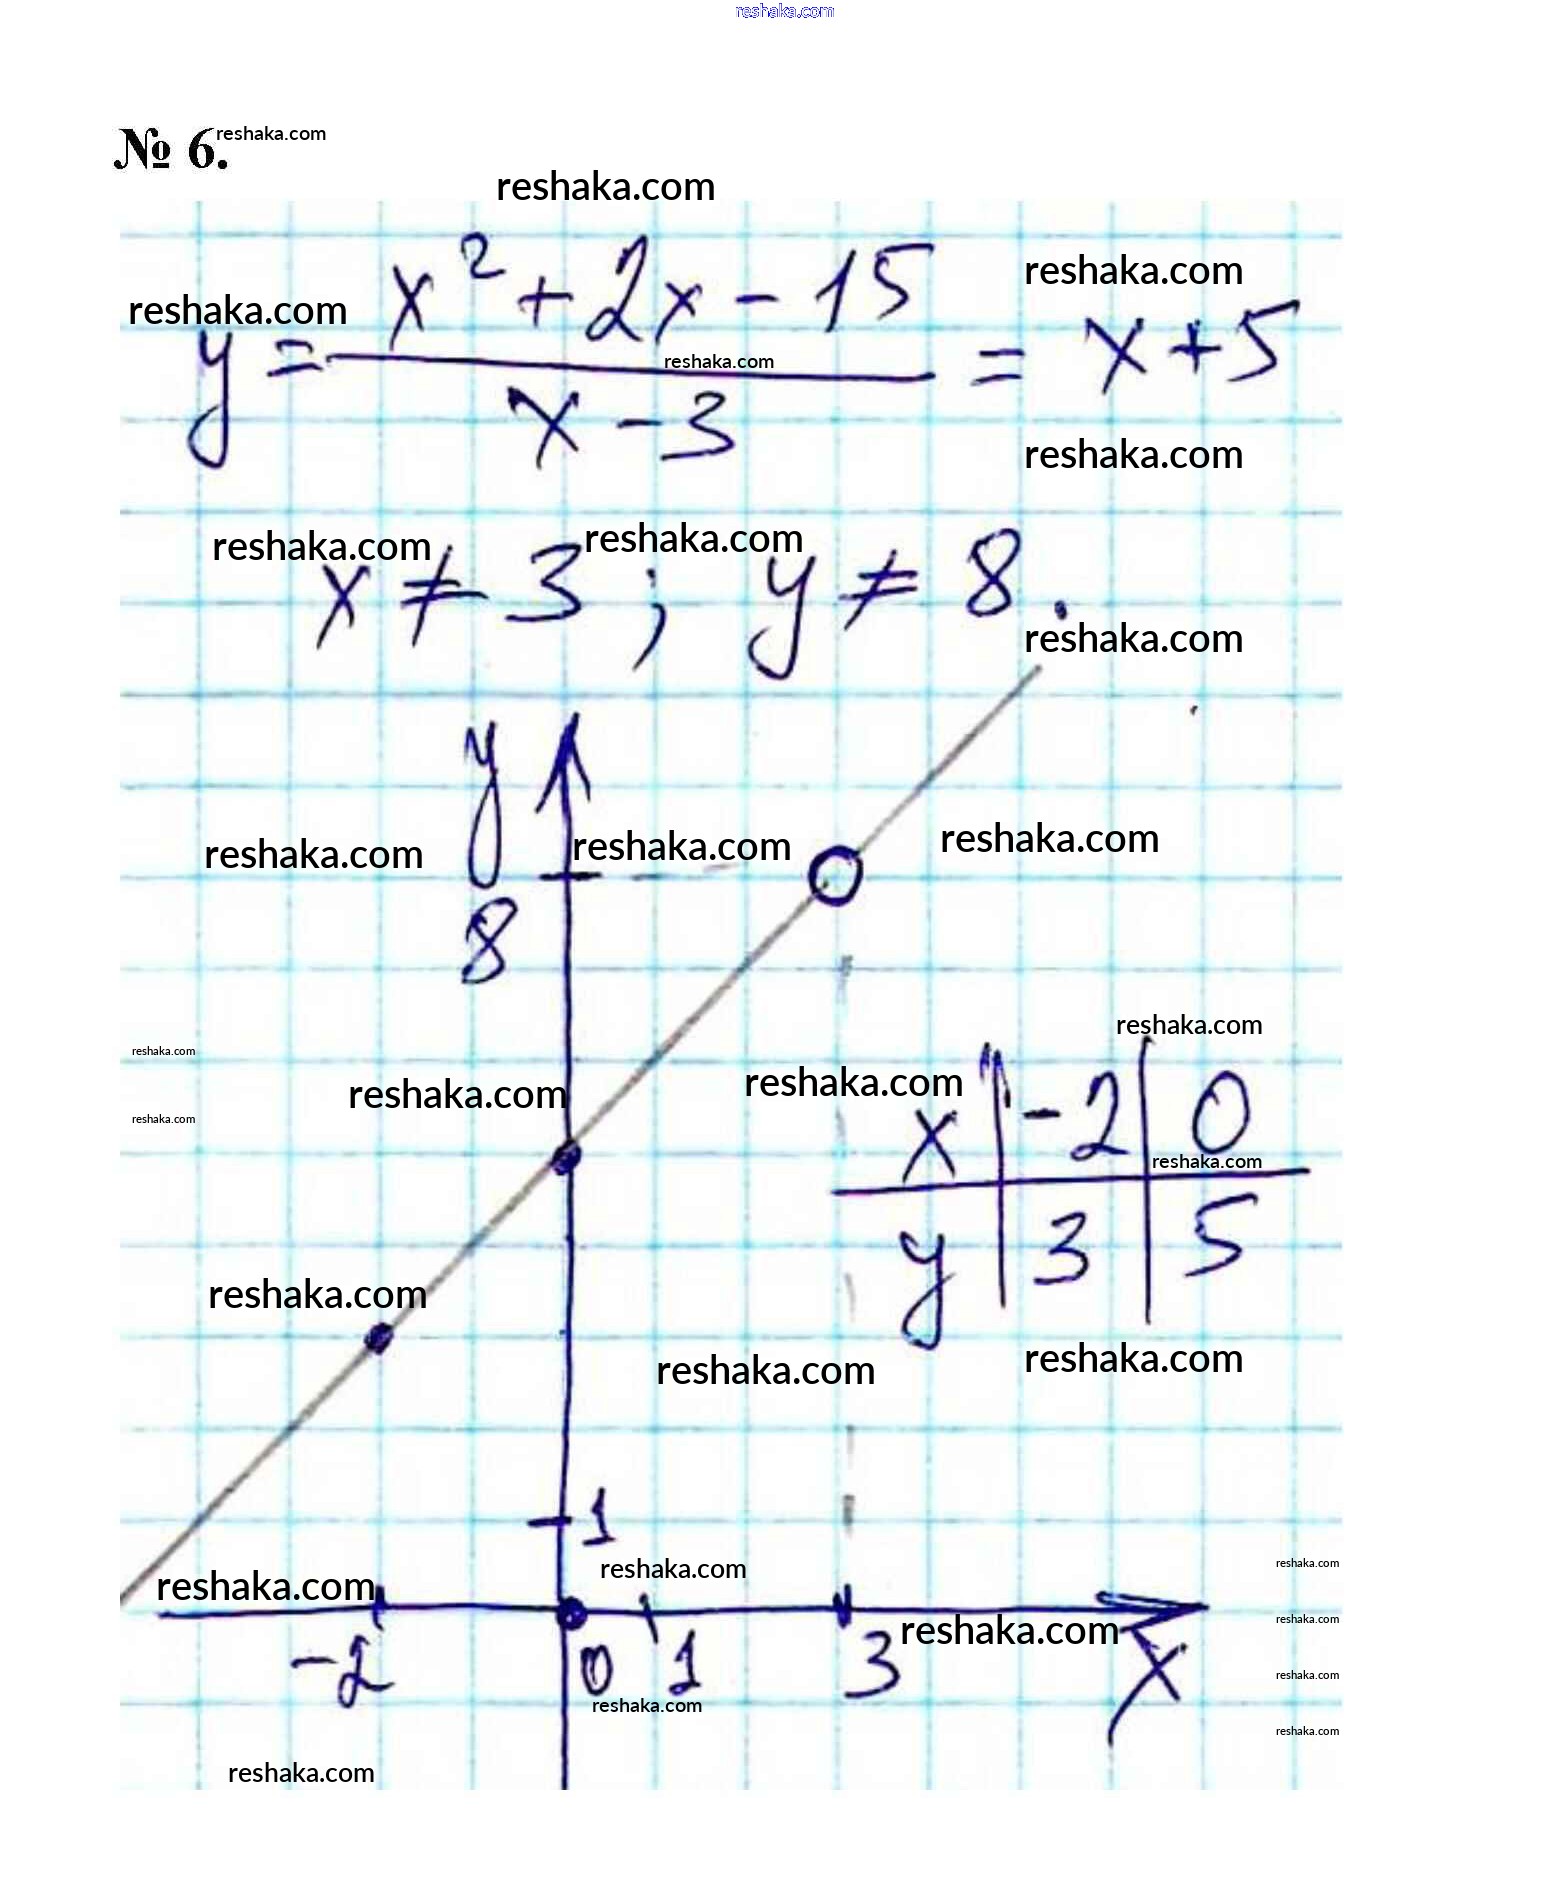 reshaka.com
№ 6. reshaka.com
reshaka.com
reshaka.com
reshaka.com
y = x² + 2x - 15 / x - 3 = x + 5
reshaka.com
reshaka.com
reshaka.com reshaka.com
x ≠ 3 ; y ≠ 8 .
reshaka.com
y
reshaka.com reshaka.com reshaka.com
8
reshaka.com
reshaka.com
reshaka.com reshaka.com
reshaka.com
x -2 0
reshaka.com
y 3 5
reshaka.com
reshaka.com reshaka.com
1
reshaka.com reshaka.com reshaka.com
reshaka.com reshaka.com
-2 0 1 3 x
reshaka.com
reshaka.com
reshaka.com
reshaka.com